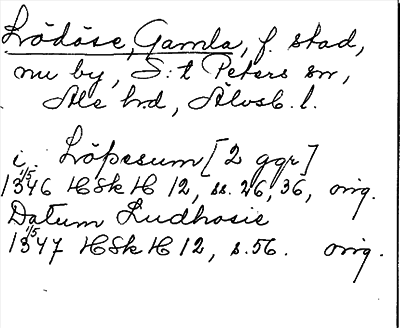 Lödöse, Gamla, f. stad,
nu by, S:t Peters sn,
Ale hd, Älvsb. l.
i Löpesum [2 ggr]
1/5
1346 HSkH 12, ss. 26, 36, orig.
Datum Ludhosie
1/5
1347 HSkH 12, s. 56. orig.